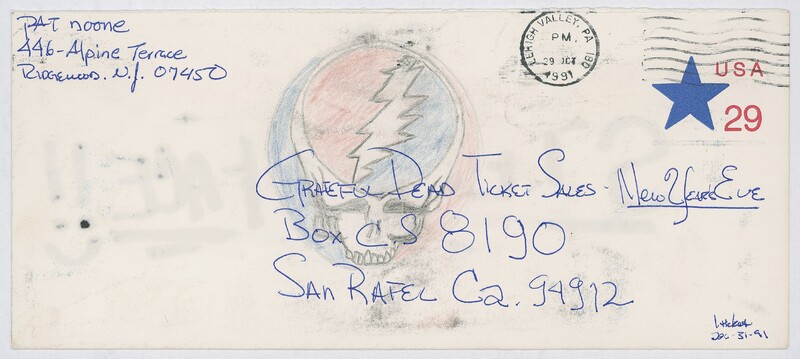 PAT noone
446-Alpine Terrace
Ridgewood. N.J. 07450
LEHIGH VALLEY, PA 180
PM
29 OCT
1991
USA
29
Grateful Dead Ticket Sales - New Years Eve
Box C.S 8190
San Rafel Ca. 94912
Dec-31-91